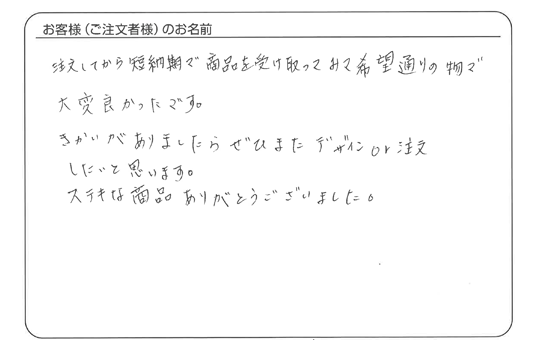 お客様（ご注文者様）のお名前
注文してから短納期で商品を受け取ってみて希望通りの物で
大変良かったです。
きかいがありましたらぜひまたデザインor注文
したいと思います。
ステキな商品ありがとうございました。